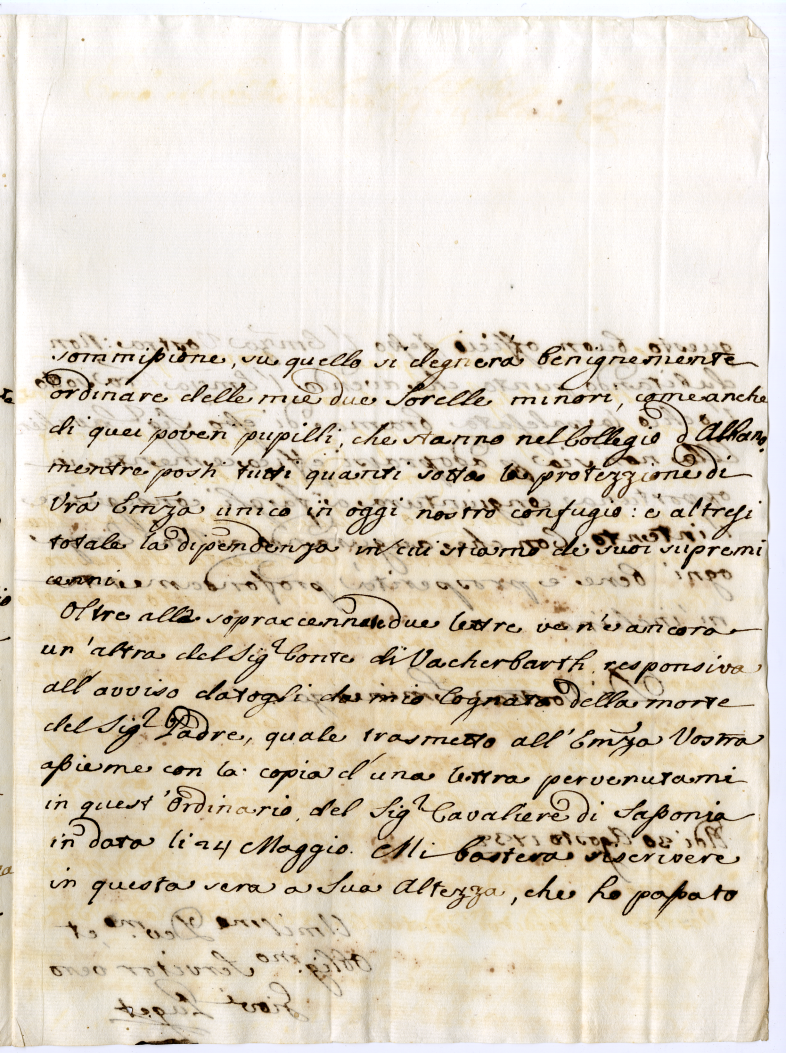 sommissione, su quello si degnera benignemente
ordinare delle mie due Sorelle minori, come anche
di quei poveri pupilli, che stanno nel Collegio d'Alban,
mentre posti tutti quanti sotto la protezzione di
Vrã Emz̃a unico in oggi nostro confugio: e altresi
totale la dipendenza in cui stiamo de suoi supremi
cenni.
Oltre alle sopraccennate due lettre ve n'è ancora
un'altra del Sigr Conte di Vacherbarth responsiva
all'avviso datogli da mio Cognato della morte
del Sigr Padre, quale trasmetto all'Emz̃a Vostra
assieme con la copia d'una lettra pervenutami
in quest'Ordinario, del Sigr Cavaliere di Sassonia
in data li 24 Maggio. Mi bastera riscrivere
in questa sera a Sua Altezza, che ho passato